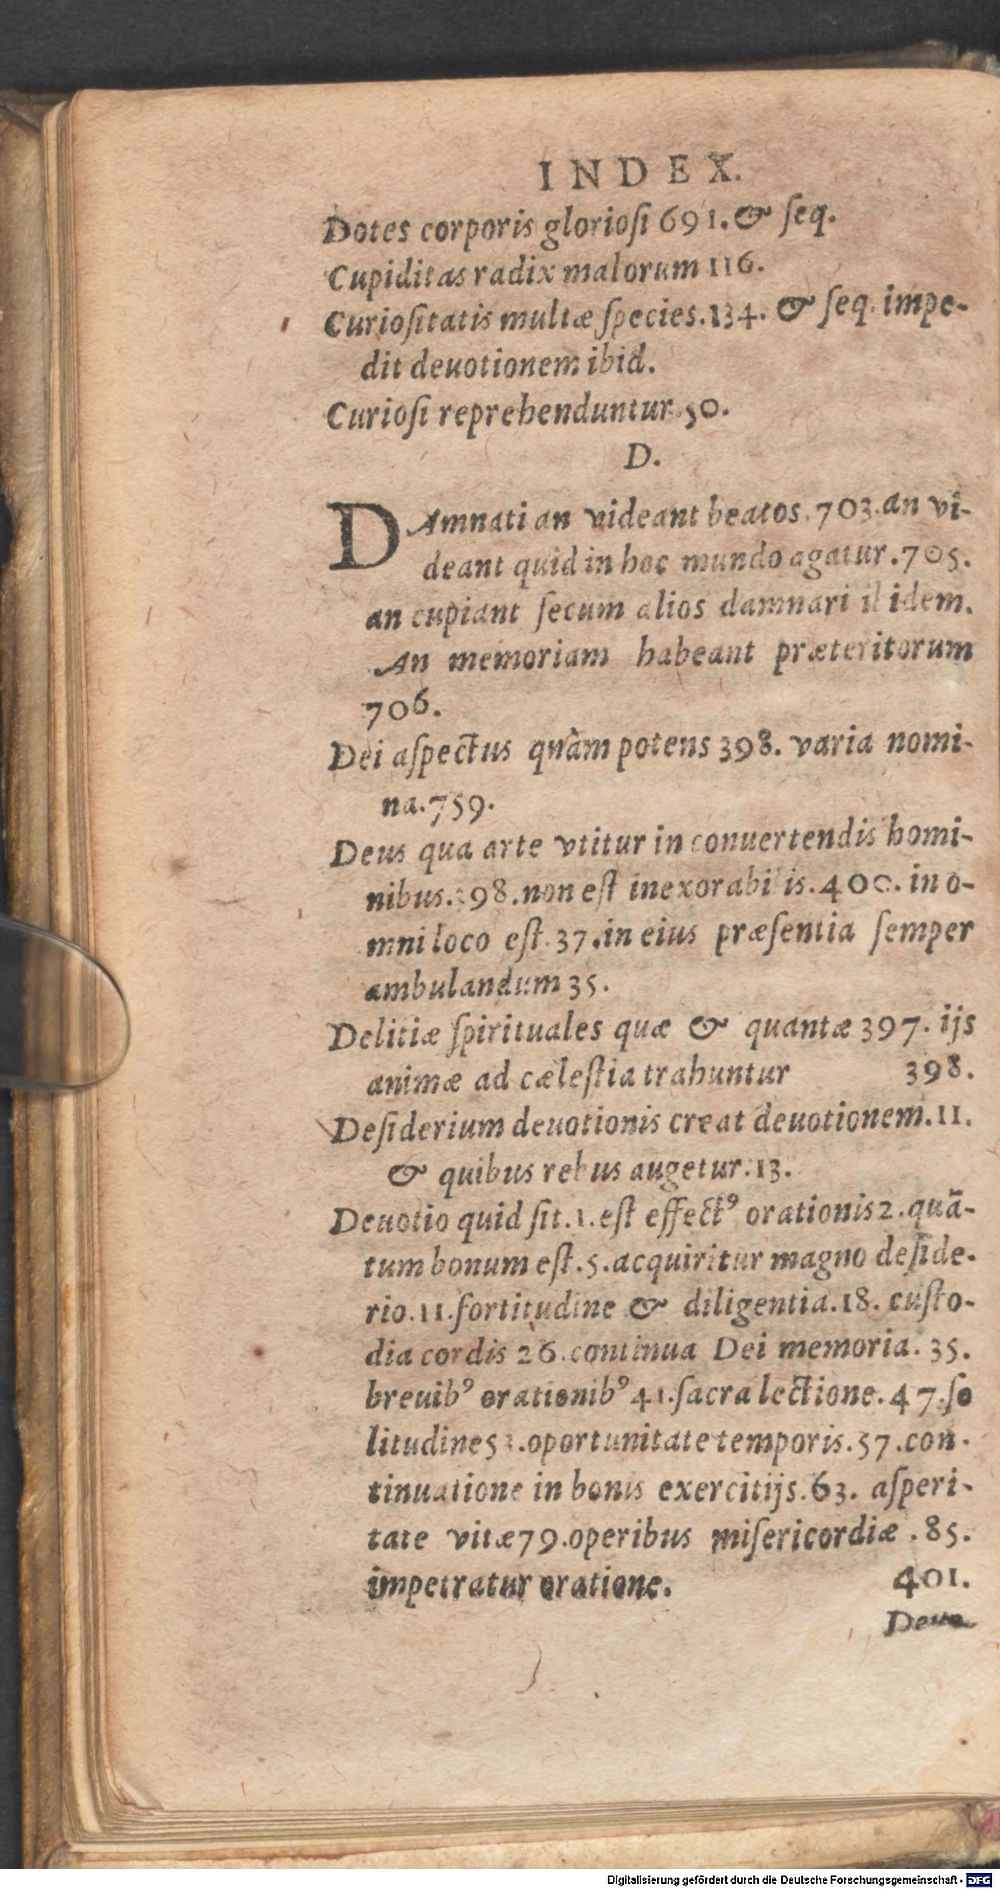 INDEX.
Dotes corporis gloriosi 691. & seq.
Cupiditas radix malorum 116.
Curiositatis multæ species. 134. & seq. impe-
dit deuotionem ibid.
Curiosi reprehenduntur 50.
D.
DAmnati an videant beatos. 703. an vi-
deant quid in hoc mundo agatur. 705.
an cupiant secum alios damnari ibidem.
An memoriam habeant præteritorum
706.
Dei aspectus quàm potens 398. varia nomi-
na. 759.
Deus qua arte vtitur in conuertendis homi-
nibus. 398. non est inexorabilis. 400. in o-
mni loco est. 37. in eius præsentia semper
ambulandum 35.
Delitiæ spirituales quæ & quantæ 397. ijs
animæ ad cælestia trahuntur 398.
Desiderium deuotionis creat deuotionem. 11.
& quibus rebus augetur. 13.
Deuotio quid sit. 1. est effectꝰ orationis 2. quā-
tum bonum est. 5. acquiritur magno deside-
rio. 11. fortitudine & diligentia. 18. custo-
dia cordis 26. continua Dei memoria. 35.
breuibꝰ orationibꝰ 41. sacra lectione. 47. so
litudine. oportunitate temporis. 57. con-
tinuatione in bonis exercitijs. 63. asperi-
tate vitæ 79. operibus misericordiæ. 85.
impetratur oratione. 401.
Deuo
Digitalisierung gefördert durch die Deutsche Forschungsgemeinschaft - DFG